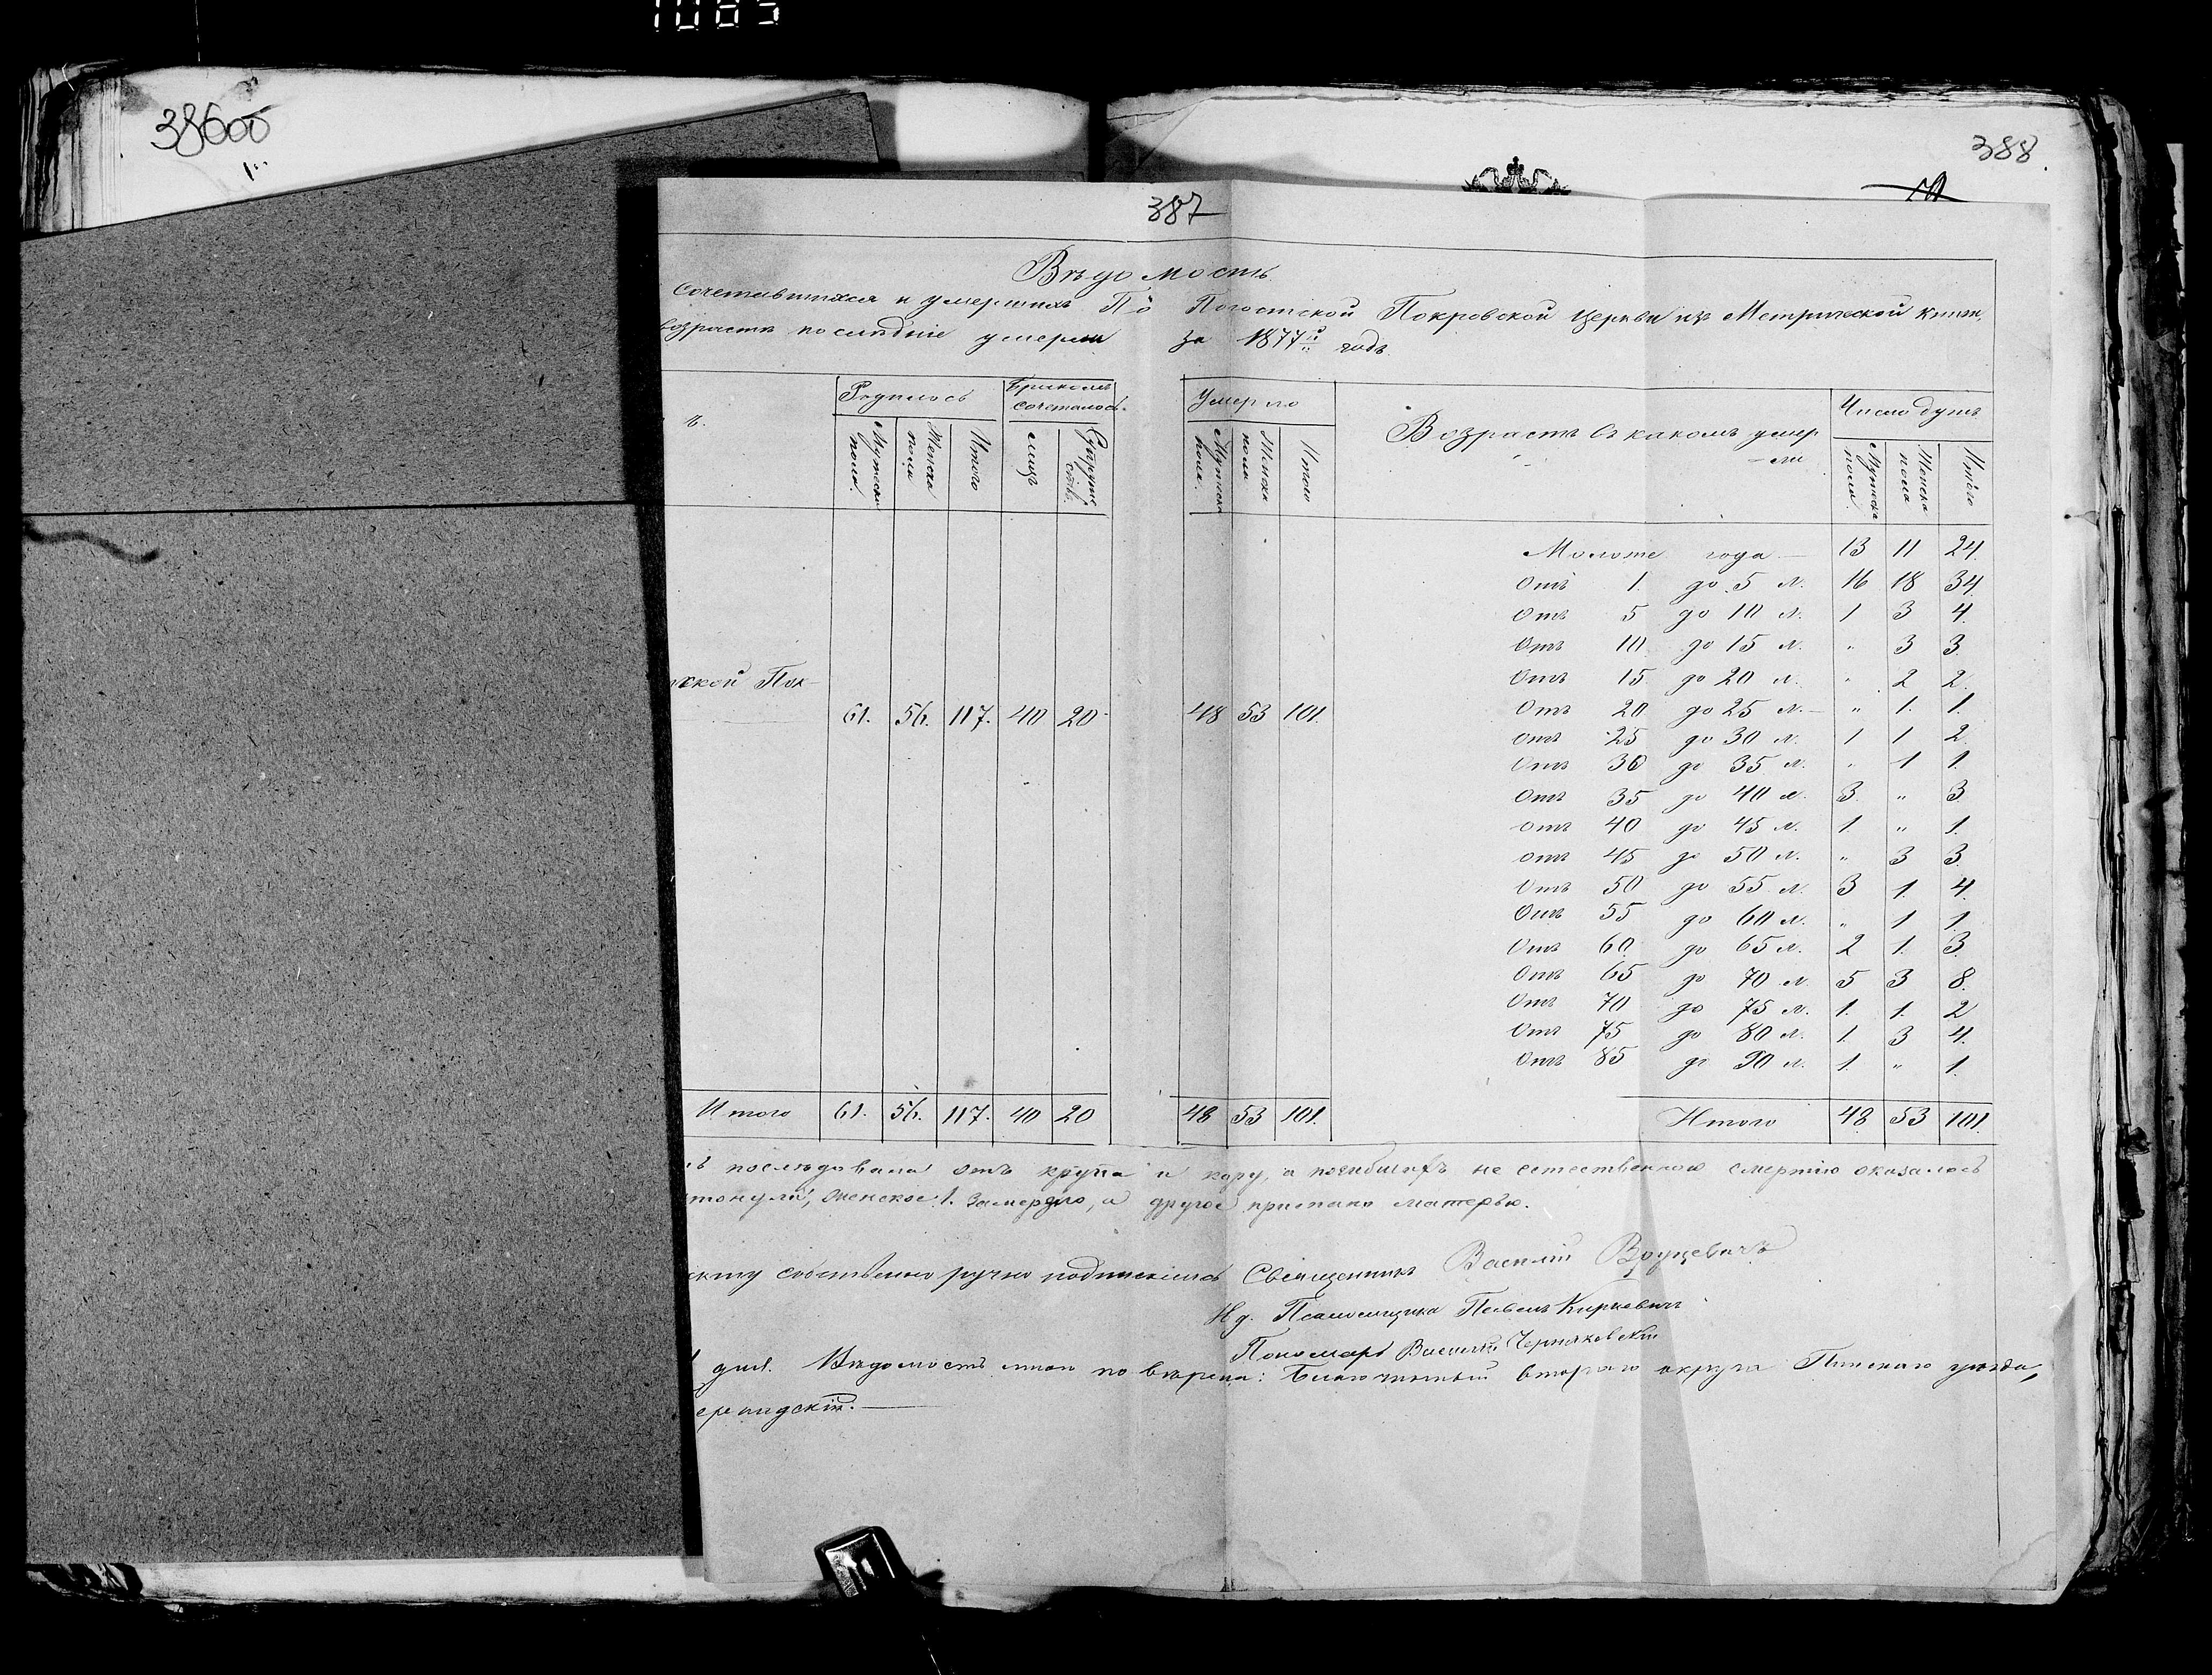 1085
38600
388
387
Вѣдомость
сочетавшихся и умершихъ По Погостской Покровской Церкви изъ Метрической книги,
возраста послѣдніе умерли за 1877й годъ.
Родилось
Бракомъ сочеталось
Умерло
Возрастъ въ какомъ умерли
Число душъ
ъ.
Мужеска пола.
Женска пола
Итого
лицъ
Супружествъ.
Мужеска пола.
Женска пола
Итого
Мужеска пола
Женска пола
Итого
Моложе года — 13 11 24
Отъ 1. до 5 л. 16 18 34
Отъ 5 до 10 л. 1 3 4.
Отъ 10 до 15 л. " 3 3.
Отъ 15 до 20 л. " 2 2.
Отъ 20 до 25 л. — " 1. 1.
Отъ 25 до 30 л. 1 1 2
Отъ 30 до 35 л. " 1 1.
Отъ 35 до 40 л. 3. " 3
Отъ 40 до 45 л. 1. " 1.
Отъ 45 до 50 л. " 3 3.
Отъ 50 до 55 л. 3 1. 4.
Отъ 55 до 60 л. " 1 1.
Отъ 60 до 65 л. 2 1. 3.
Отъ 65 до 70 л. 5 3 8.
Отъ 70 до 75 л. 1. 1. 2
Отъ 75 до 80 л. 1. 3 4.
Отъ 85 до 90 л. 1. " 1.
ской Пок-
61. 56. 117. 40 20 48 53 101.
Итого 61. 56. 117. 40 20 48 53 101. Итого 48 53 101.
ъ послѣдовала отъ крупа и кору, а погибшихъ не естественною смертію оказалось
тонули, женское 1. замерзло, а другое приспано матерью.
собственно ручно подписались Священникъ Василій
И д. Псаломщика Павелъ Киркевичъ
Пономарь Василій Черняковскій
дня. Вѣдомость мною повѣрена: Благочинный втораго округа Пинскаго уѣзда,